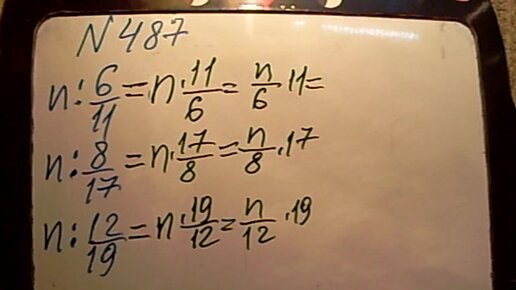 N 487
n : 6/11 = n · 11/6 = n/6 · 11 =
n : 8/17 = n · 17/8 = n/8 · 17
n : 12/19 = n · 19/12 = n/12 · 19